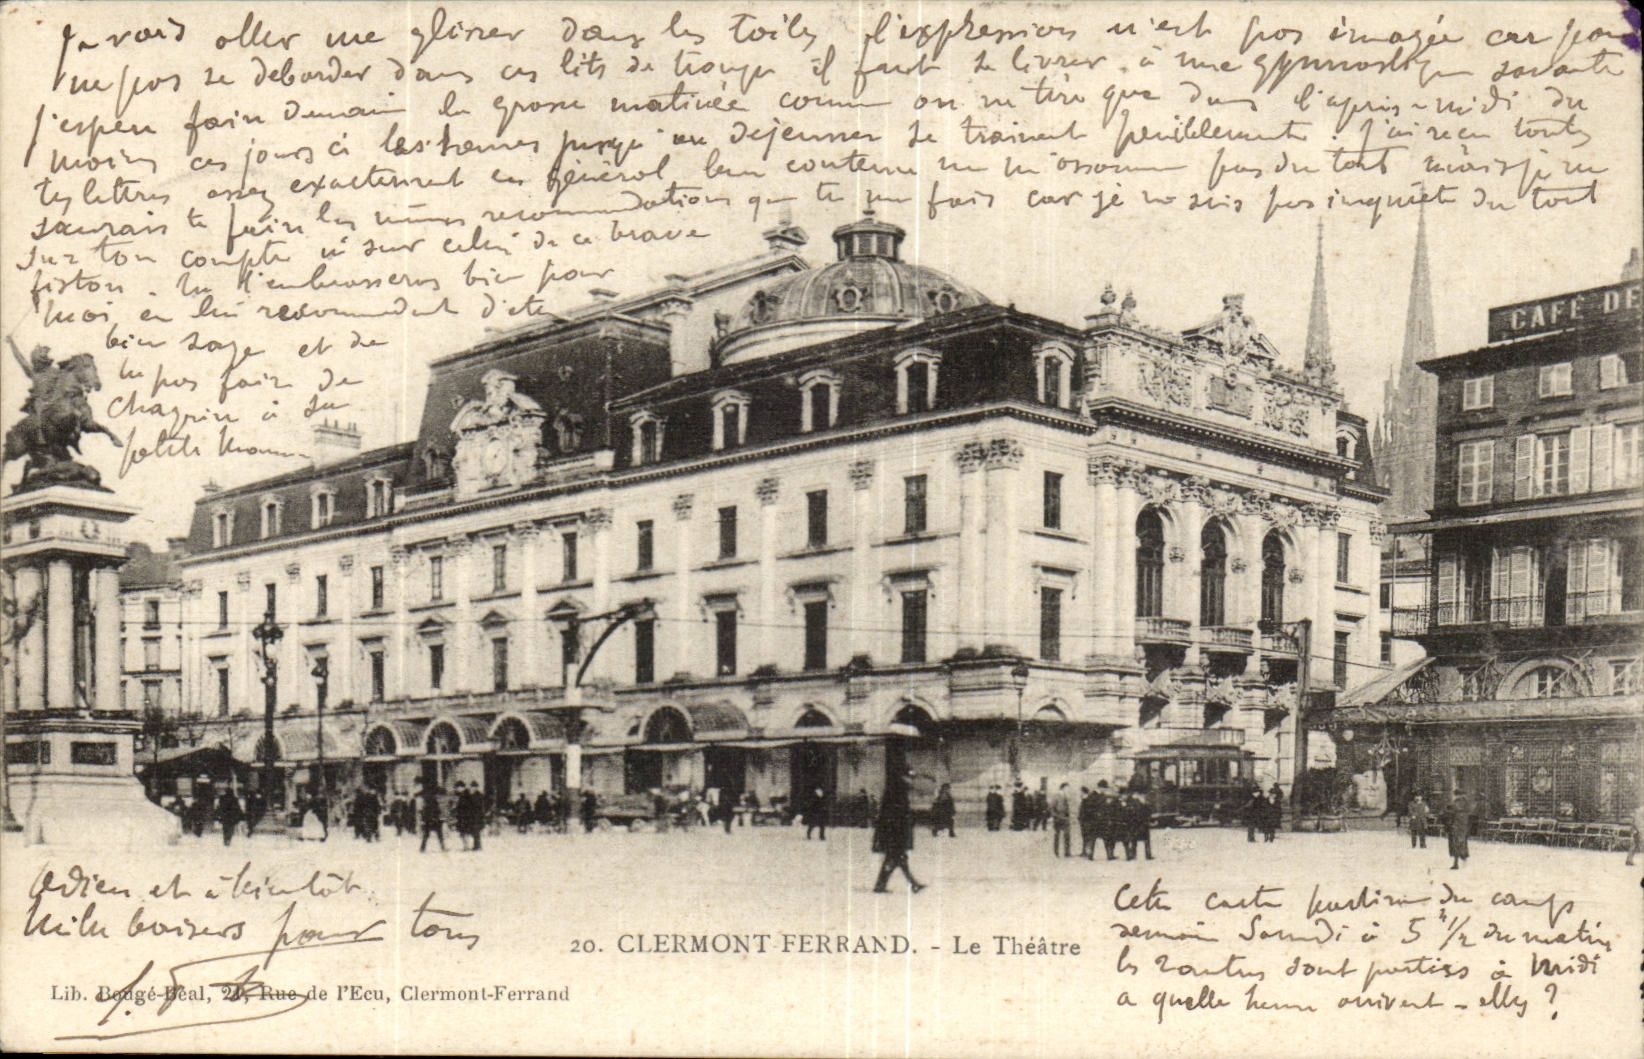 Je vais aller me glisser dans les toiles l'expression n'est pas imagée car pour
ne pas se déborder dans ces lits de troupe il faut se livrer à une gymnastique savante
j'espère faire demain la grosse matinée comme on ne tire que dans l'après-midi du
moins ces jours ci les heures jusqu'au déjeuner se trainent péniblement. J'ai reçu toutes
tes lettres assez exactement en général leur contenu ne m'assomme pas du tout mais je ne
saurais te faire les mêmes recommandations que tu me fais car je ne suis pas inquiète du tout
sur ton compte ni sur celui de ce brave
fiston. Tu l'embrasseras bien pour
moi en lui recommandant d'être
bien sage et de
ne pas faire de
chagrin à sa
petite Maman
CAFÉ DE
Adieu et à bientôt
Mille baisers pour tous
Cette carte partira du camp
demain Samedi à 5 h 1/2 du matin
les autres sont parties à Midi
a quelle heure arrivent-elles ?
20. CLERMONT FERRAND. - Le Théâtre
Lib. Bougé-Béal, 21, Rue de l'Ecu, Clermont-Ferrand